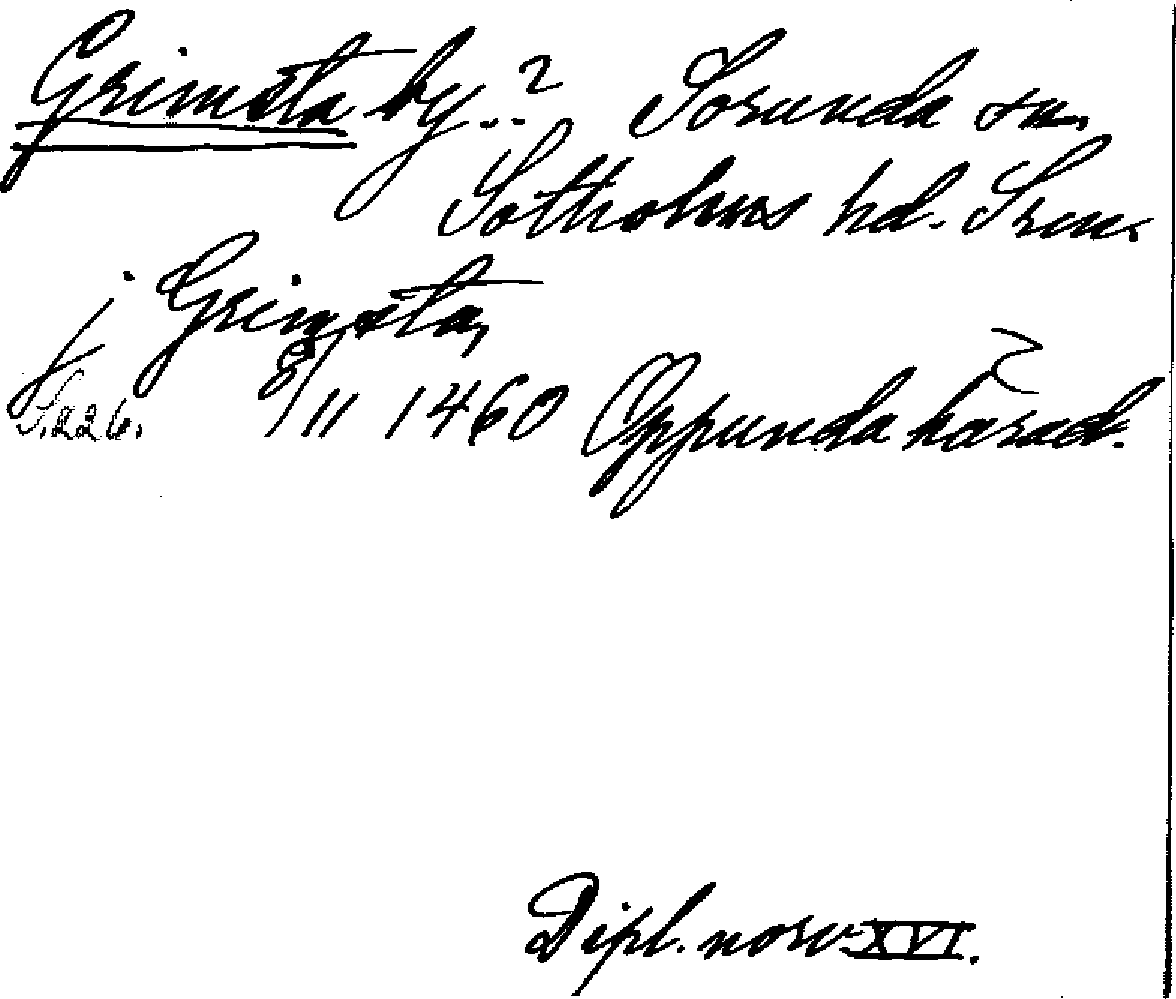 Grimsta by..? Sorunda sn.
Sotholms hd. Srm.
j Grimsta,
S.226. 8/11 1460 Oppunda härad.
Dipl. norv XVI.